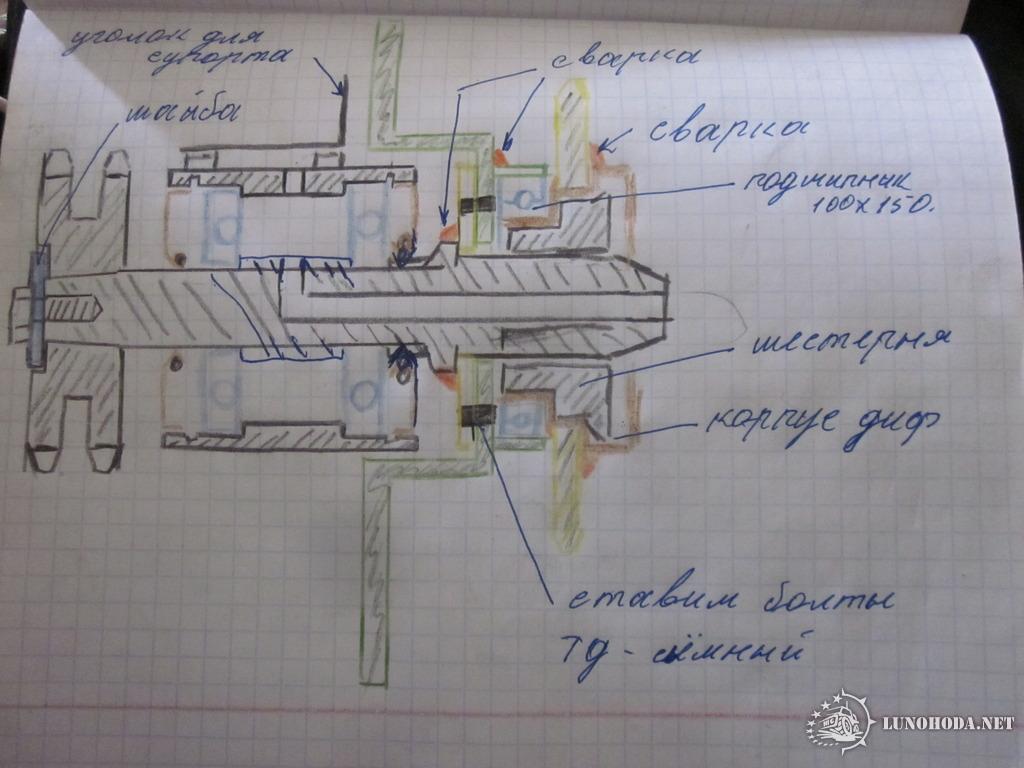 уголок для
супорта
шайба
сварка
сварка
подшипник
100х150.
шестерня
корпус диф
ставим болты
ТД - съёмный
LUNOHODA.NET